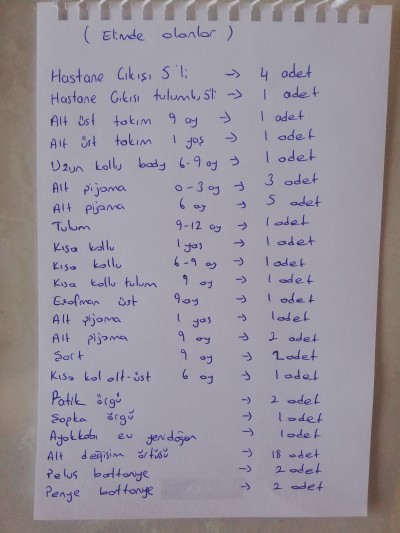 ( Elinde olanlar )
Hastane Çıkışı 5'li -> 4 adet
Hastane Çıkışı tulumlu 5li -> 1 adet
Alt üst takım 9 ay -> 1 adet
Alt üst takım 1 yaş -> 1 adet
Uzun kollu body 6-9 ay -> 1 adet
Alt pijama 0-3 ay -> 3 adet
Alt pijama 6 ay -> 5 adet
Tulum 9-12 ay -> 1 adet
Kısa kollu 1 yaş -> 1 adet
Kısa kollu 6-9 ay -> 1 adet
Kısa kollu tulum 9 ay -> 1 adet
Eşofman üst 9 ay -> 1 adet
Alt pijama 1 yaş -> 1 adet
Alt pijama 9 ay -> 2 adet
Şort 9 ay -> 2 adet
Kısa kol alt-üst 6 ay -> 1 adet
Patik örgü -> 2 adet
Şapka örgü -> 1 adet
Ayakkabı ev yenidoğan -> 1 adet
Alt değişim örtüsü -> 18 adet
Peluş battanye -> 2 adet
Penye battanye -> 2 adet